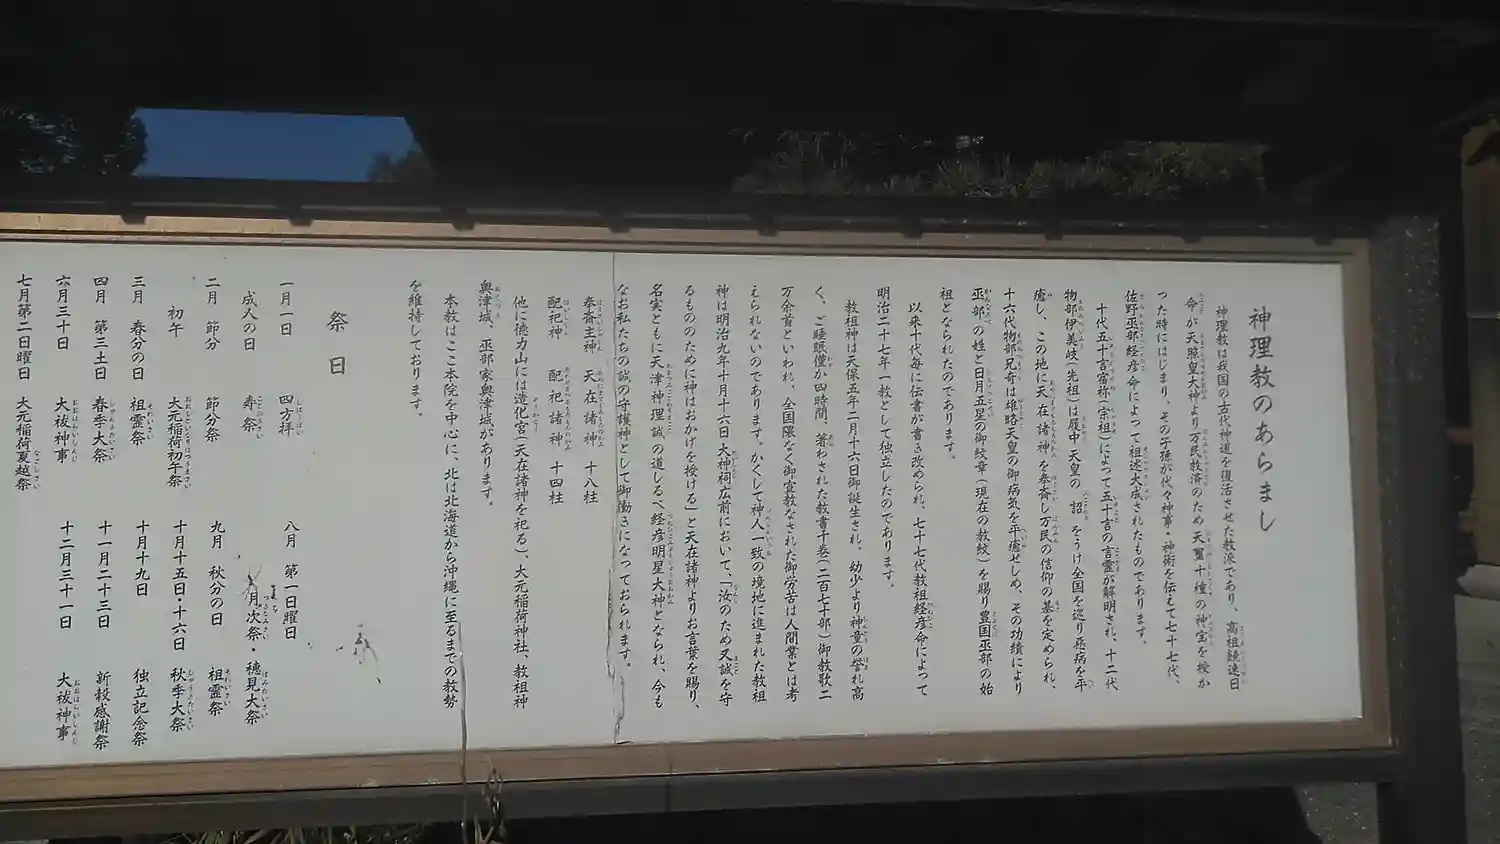 神理教のあらまし
神理教は我国の古代神道を復活させた教派であり、高祖饒速日
命が天照皇大神より万民救済のため天璽十種の神宝を授か
った時にはじまり、その子孫が代々神事・神術を伝えて七十七代、
佐野巫部経彦命によって祖述大成されたものであります。
十代五十言宿祢(宗祖)によって五十言の言霊が解明され、十二代
物部伊美岐(先祖)は履中天皇の詔をうけ全国を巡り悪病を平
癒し、この地に天在諸神を奉斎し万民の信仰の基を定められ、
十六代物部兄奇は雄略天皇の御病気を平癒せしめ、その功績により
巫部の姓と日月五星の御紋章(現在の教紋)を賜り豊国巫部の始
祖となられたのであります。
以来十代毎に伝書が書き改められ、七十七代教祖経彦命によって
明治二十七年一教として独立したのであります。
教祖神は天保五年二月十六日御誕生され、幼少より神童の誉れ高
く、ご睡眠僅か四時間、著わされた教書千巻(二百七十部)御教歌二
万余首といわれ、全国隈なく御宣教なされた御労苦は人間業とは考
えられないのであります。かくして神人一致の境地に進まれた教祖
神は明治九年十月十六日大神祠広前において、「汝のため又誠を守
るもののために神はおかげを授ける」と天在諸神よりお言葉を賜り、
名実ともに天津神理誠の道しるべ経彦明星大神となられ、今も
なお私たちの誠の守護神として御働きになっておられます。
奉斎主神 天在諸神 十八柱
配祀神 配祀諸神 十四柱
他に徳力山には造化宮(天在諸神を祀る)、大元稲荷神社、教祖神
奥津城、巫部家奥津城があります。
本教はここ本院を中心に、北は北海道から沖縄に至るまでの教勢
を維持しております。
祭日
一月一日 四方拝
成人の日 寿祭
二月 節分 節分祭
初午 大元稲荷初午祭
三月 春分の日 祖霊祭
四月 第三土日 春季大祭
六月三十日 大祓神事
七月第二日曜日 大元稲荷夏越祭
八月 第一日曜日
月次祭・穂見大祭
九月 秋分の日 祖霊祭
十月十五日・十六日 秋季大祭
十月十九日 独立記念祭
十一月二十三日 新穀感謝祭
十二月三十一日 大祓神事